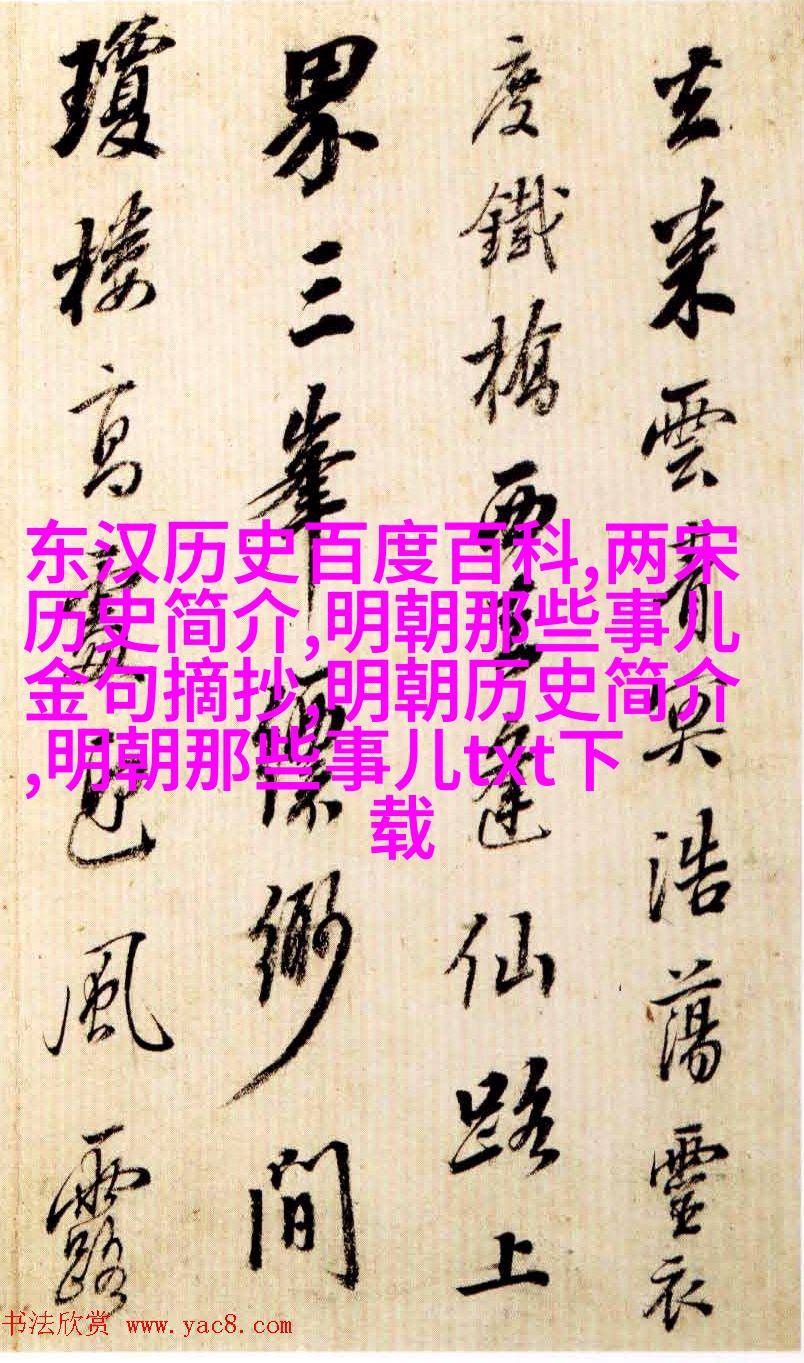 去来雲青冥浩蕩靈衣
度鐵橋西逢仙路上
界三峯縹緲間
瓊樓高處風露
东汉历史百度百科,两宋
历史简介,明朝那些事儿
金句摘抄,明朝历史简介
,明朝那些事儿txt下
载
书法欣赏 www.yac8.com